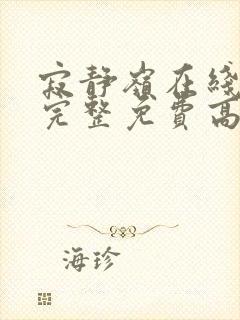 寂静嶺在綫
完整免費高
海珍